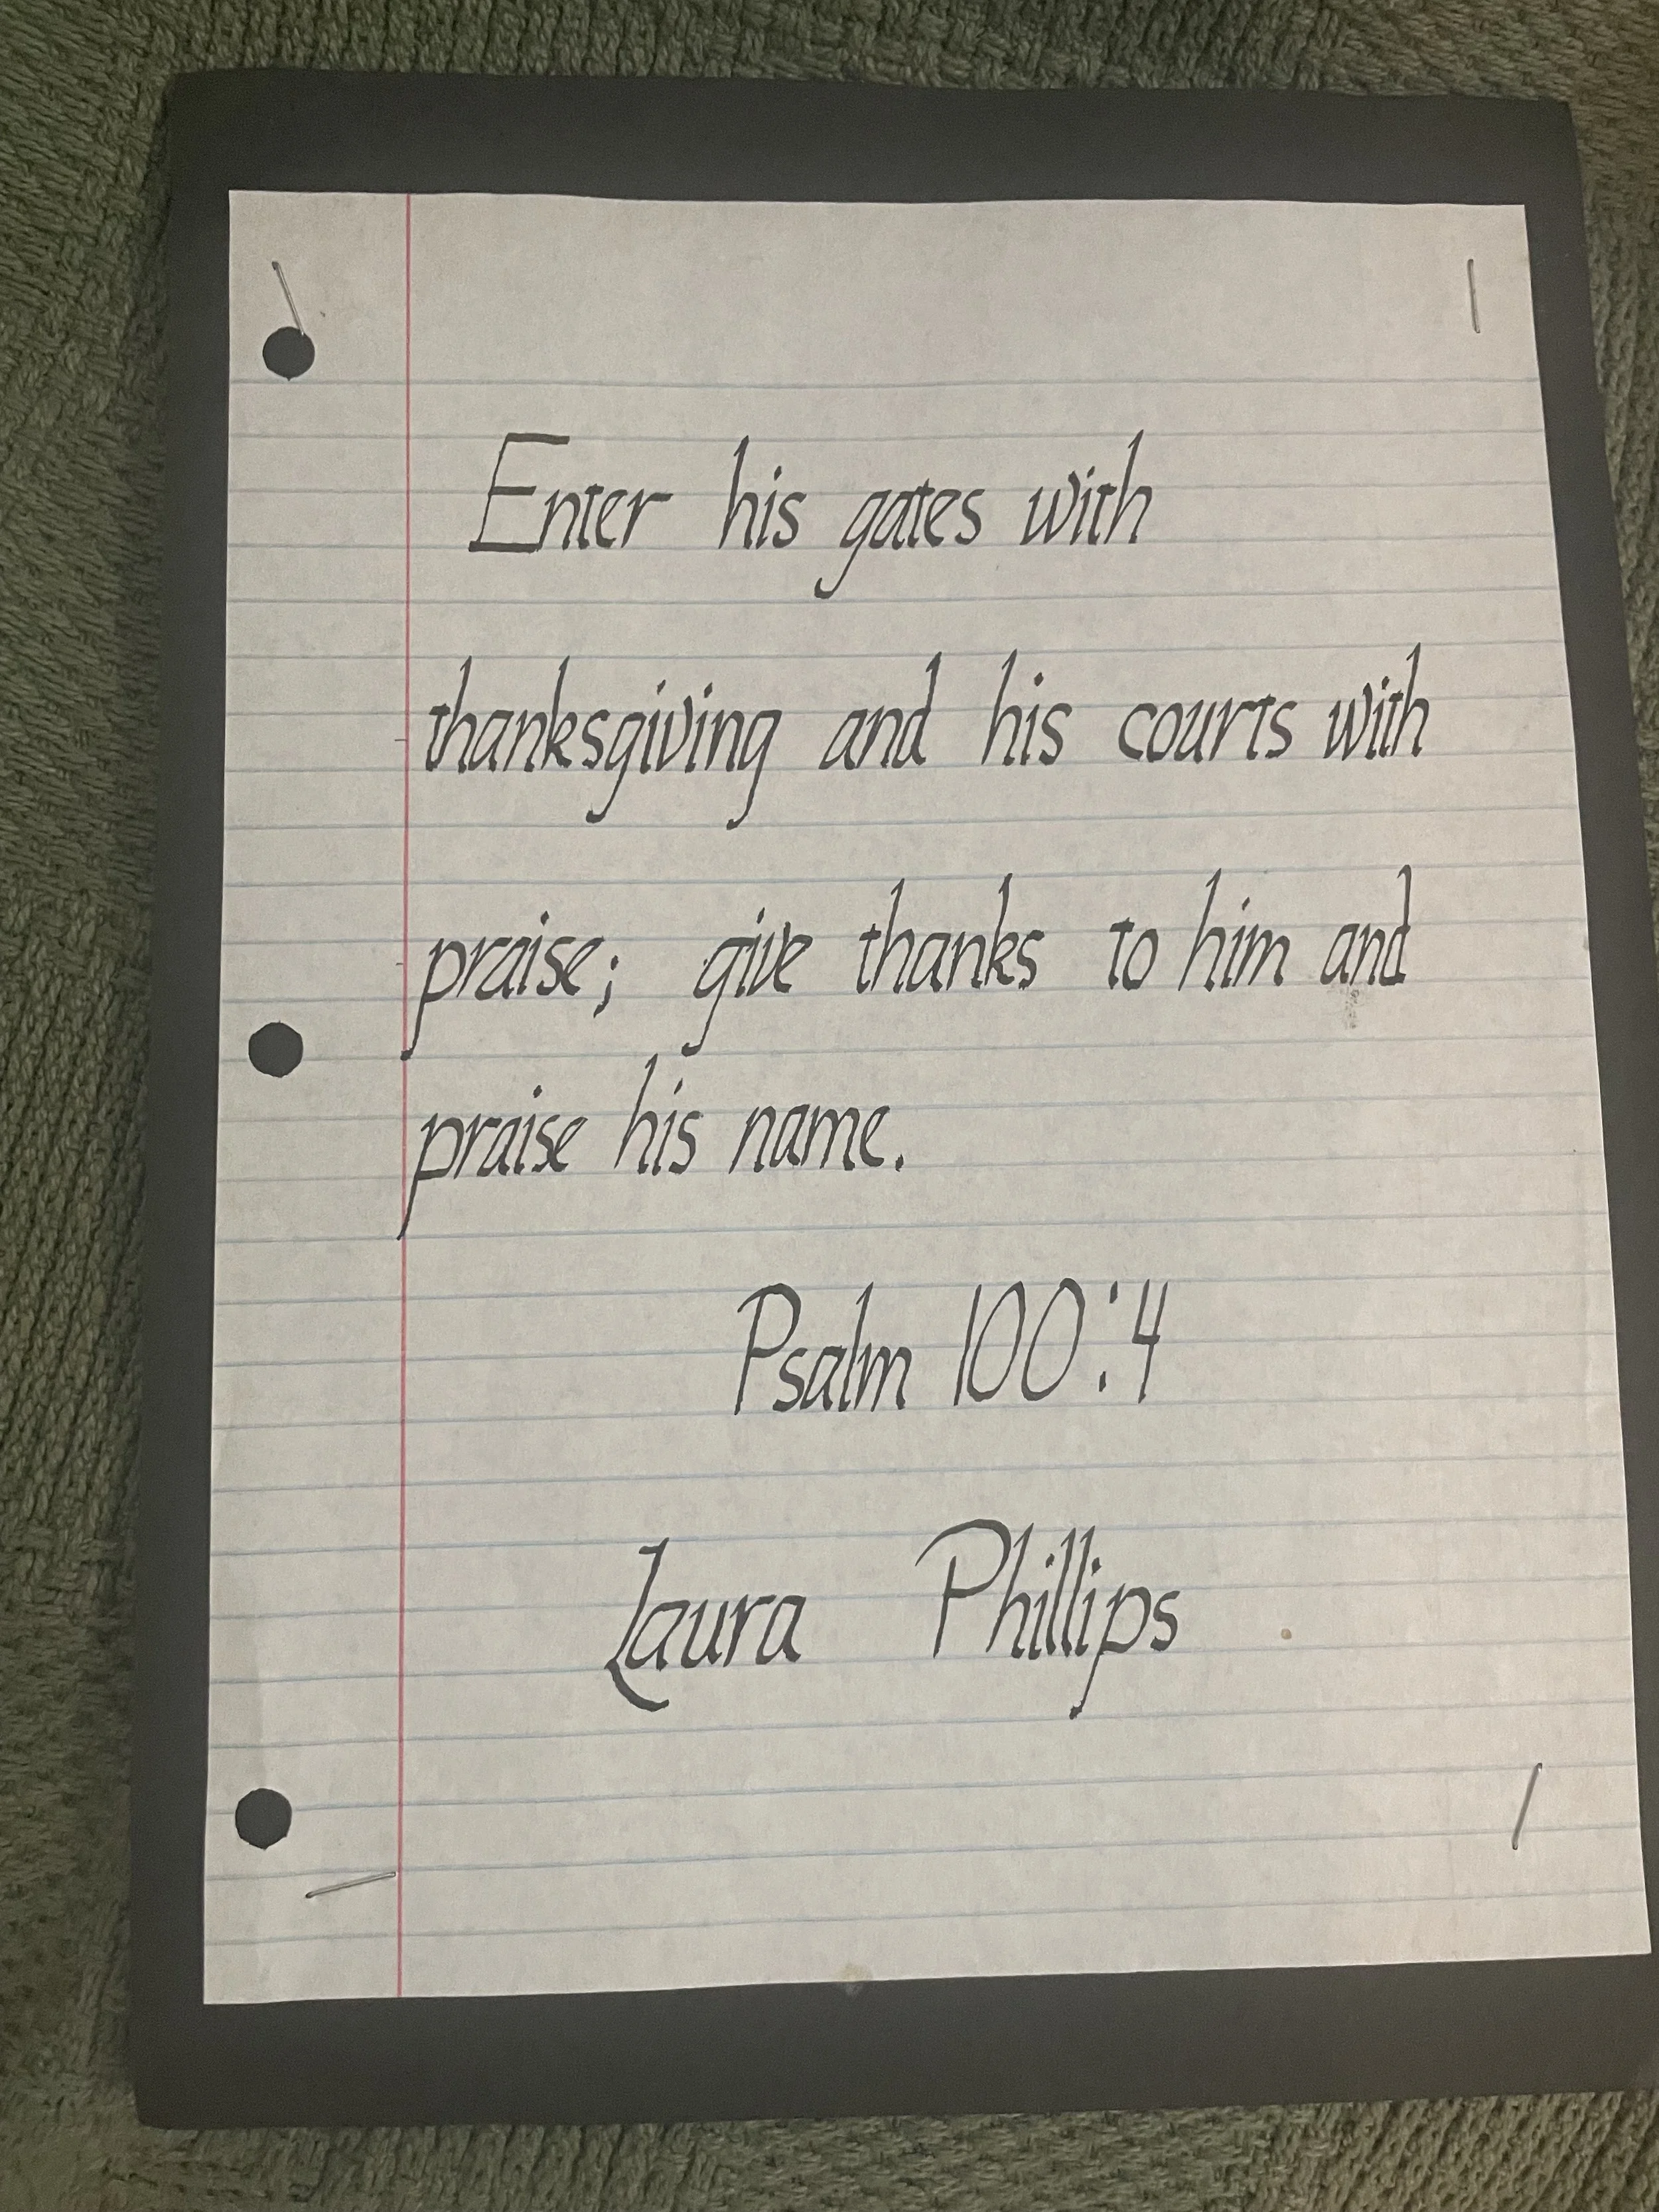 Enter his gates with
thanksgiving and his courts with
praise; give thanks to him and
praise his name.
Psalm 100:4
Laura Phillips